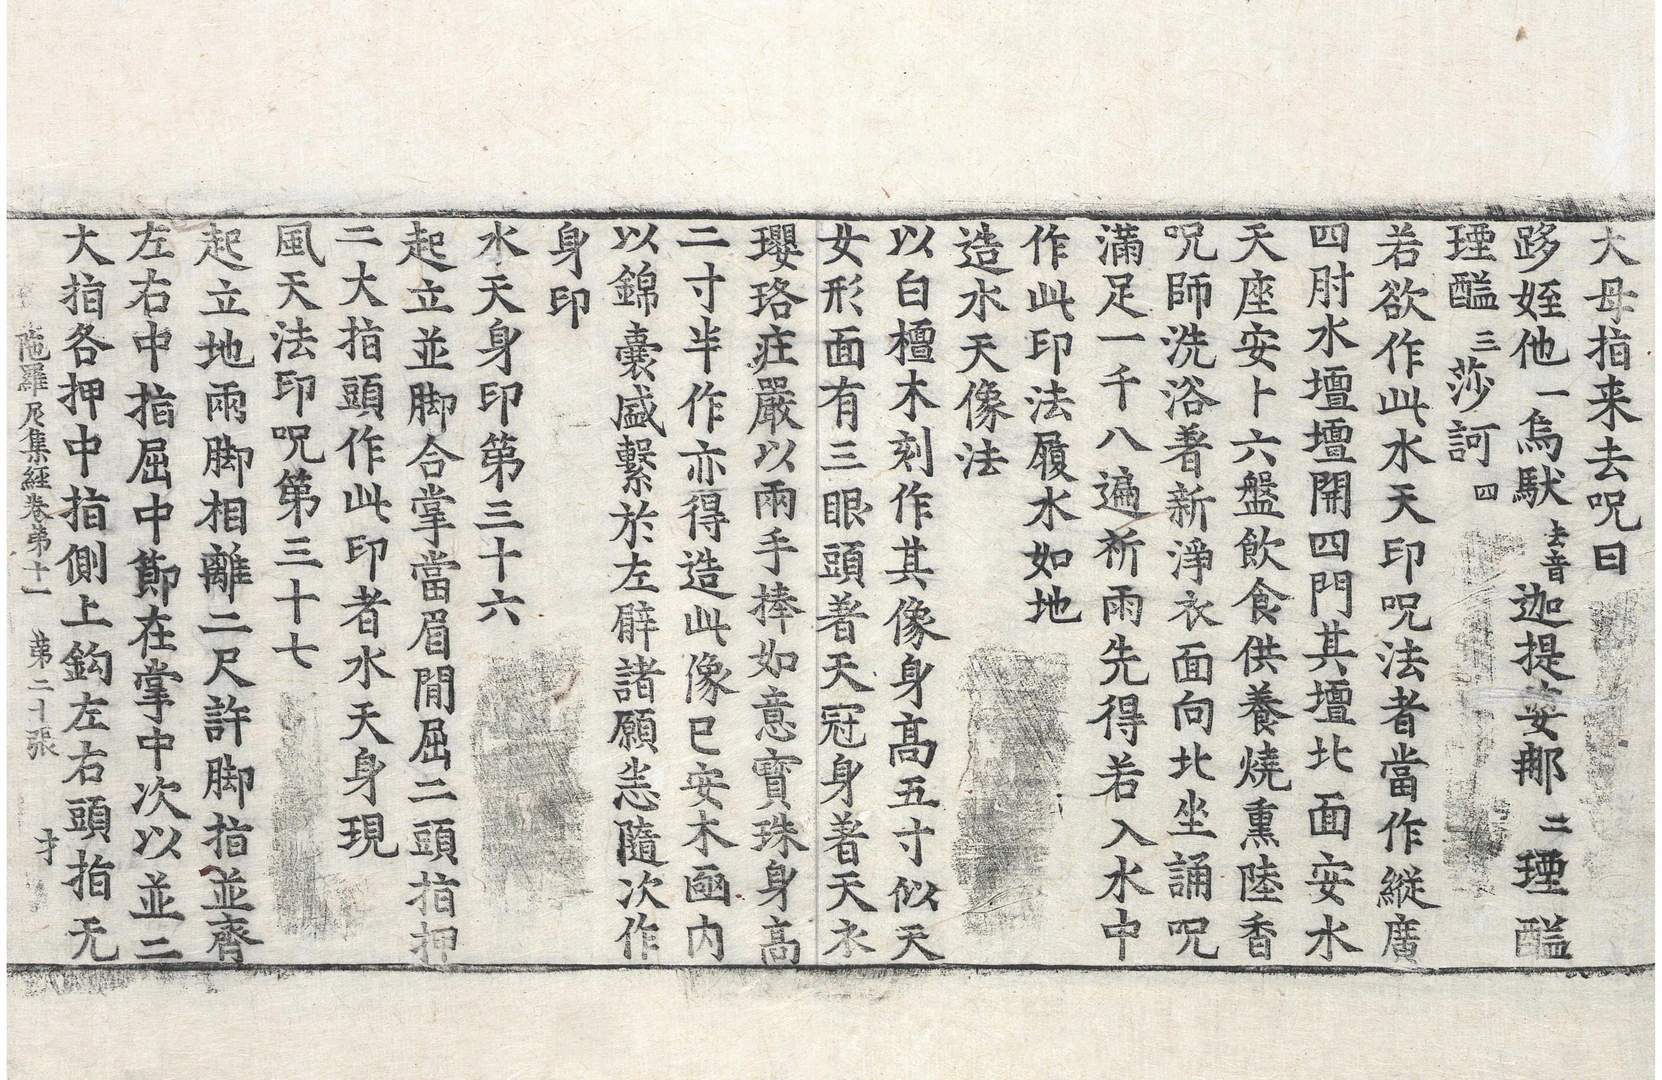 大母指来去呪曰
跢姪他一烏馱去音迦提婆那二瑿醯
瑿醯三莎訶四
若欲作此水天印呪法者當作縱廣
四肘水壇壇開四門其壇北面安水
天座安卜六盤飲食供養燒熏陸香
呪師洗浴著新淨衣面向北坐誦呪
滿足一千八遍祈雨先得若入水中
作此印法履水如地
造水天像法
以白檀木刻作其像身高五寸似天
女形面有三眼頭著天冠身著天衣
瓔珞疘嚴以兩手捧如意寳珠身高
二寸半作亦得造此像已安木凾内
以錦囊盛繋於左臂諸願恙隨次作
身印
水天身印第三十六
起立並脚合掌當眉閒屈二頭指押
二大指頭作此印者水天身現
風天法印呪第三十七
起立地兩脚相離二尺許脚指並齊
左右中指屈中節在掌中次以並二
大指各押中指側上鈎左右頭指无
陁羅尼集經卷第十一 第二十張 才